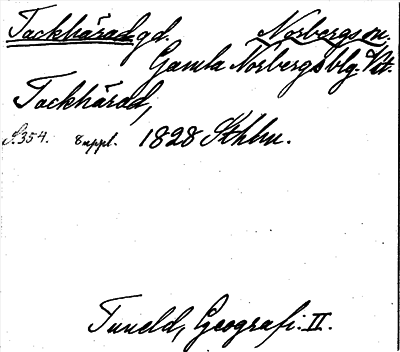 Tackhärad gd. Norbergs sn.
Gamla Norbergs blg. Vstm.
Tackhärad,
S. 354. suppl. 1828 Sthlm.
Tuneld, Geografi. II.